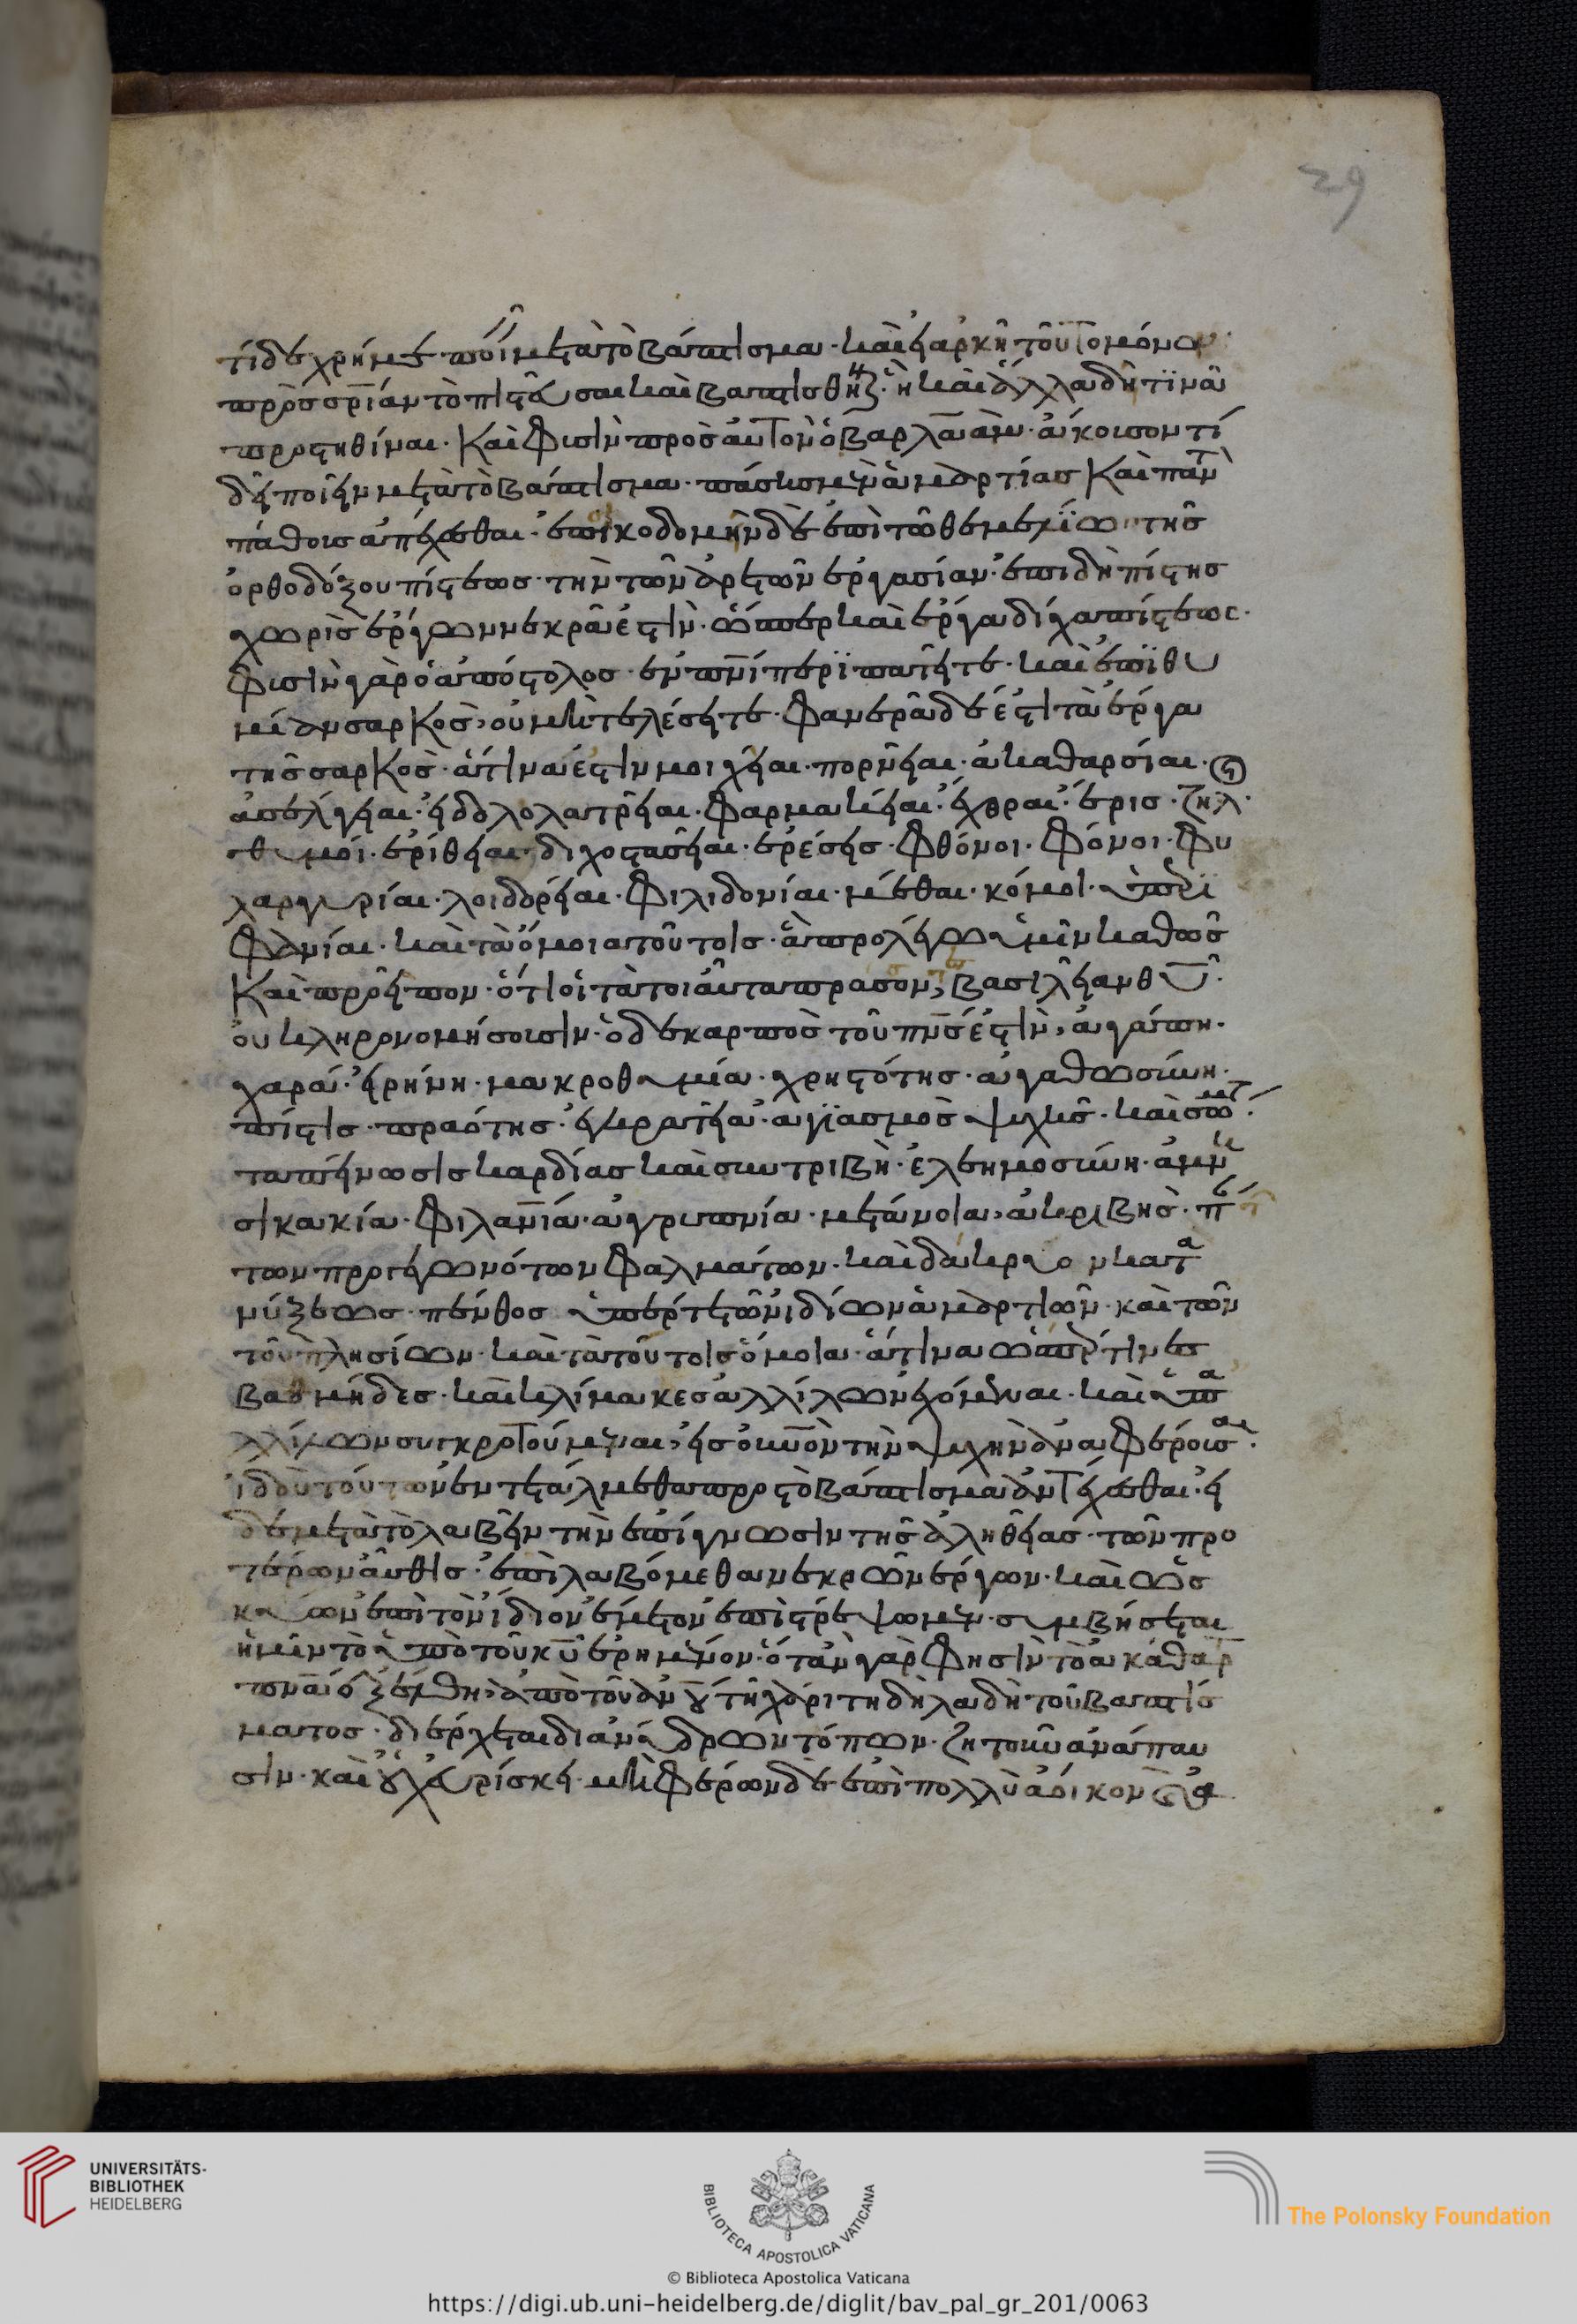 29
τί δε χρή με ποιῆν μετὰ τὸ βάπτισμα · καὶ ἠ ἀρκῆ τοῦτο μόνον
πρὸς σρίαν τὸ πιστεῦσαι καὶ βαπτισθῆναι · ἢ καὶ ἄλλα δῆ τϊνα
προστηθίναι · Καὶ φισὶν προσ αὐτὸν ὁ βαρλαὰμ · ἄκοισον τί
δῆ ποιῆν μετὰ τὸ βάπτισμα · πάσισ μὲν ἁμαρτίασ καὶ παντὸσ
πάθουσ ἀπέχεσθαι · ἐποικοδομῆν δὲ ἐπὶ τῶ θεμελίω τῆσ
ὀρθοδόξου πίστεωσ · τὴν τῶν ἀρετῶν ἐργασίαν · ἐπιδὴ πίστησ
χωρὶσ ἔργων νεκρά ἐστὶν · ὥσπερ καὶ ἔργα δίχα πίστεωσ ·
φισὶν γὰρ ὁ ἀπόστολοσ · ἐν πνί περϊπατῆτε · καὶ ἐπϊθυ
μίαν σαρκὸσ, οὐ μὶ τελέσητε · φανερὰ δέ ἐστι τὰ ἔργα
τῆσ σαρκὸσ · ἅτινα ἐστὶν μοιχῆαι · πορνῆαι · ἀκαθαρσίαι ·
ἀσελγῆαι · ἠδολολατρῆαι · φαρμακῆαι · ἔχθραι · ἔρισ · ζῆλ ·
θυμοί · ἐρίθηαι · διχοστασῆαι · ἐρέσησ · φθόνοι · φόνοι · φυ
λαργυρίαι · λοιδορῆαι · φιλιδονίαι · μέθαι · κόμοι · ὑπερϊ
φανίαι · καὶ τὰ ὅμοια τούτοισ · ἃ προλέγω ὑμῖν καθῶσ
καὶ προῆπον · ὅτι οἱ τὰ τοιαῦτα πράσοντεσ, βασιλῆαν θυ ·
οὐ κληρονομήσουσιν · ὁ δε καρπὸσ τοῦ πνσ ἐστὶν, ἀγάπη ·
χαρά · ἠρήνη · μακροθυμία · χρηστότησ · ἀγαθωσύνη ·
πίστισ · πραότησ · ἐγκρατῆα · ἁγϊασμὸσ ψυχῆσ · καὶ σώματ ·
ταπήνωσισ καρδίασ καὶ συντριβὴ · ἐλεημοσύνη · ἀμνι
σικακία · φιλανία · ἀγρυπνία · μετάνοια, ἀκριβὴσ · π
τῶν προγεγωνότων φαλμάτων · καὶ δάκρυον κατα
νύξεωσ · πένθοσ ὑπέρ τε τῶν ἰδίων ἁμαρτιῶν · καὶ τῶν
τοῦ πλησίων · καὶ τὰ τούτοισ ὅμοια · ἅτινα ὥσπερ τίνεσ
βαθμήδεσ · καὶ κλίμακεσ ἀλλίλων ἐχόμεναι · καὶ ὑπ ἀ
λλίλων συγκροτούμεναι, ἠσ οὐνὸν τὴν ψυχὴν ἀναφέρουσαι ·
ἰδοὺ τούτων ἐντετάλμεθα προσ τὸ βάπτισμα ἀντέχεσθαι · ἠ
δὲ μετὰ τὸ λαβῆν τὴν ἐπίγνωσιν τῆσ ἀληθῆασ · τῶν προ
τέρων αὖθισ · ἐπϊλαβόμεθα νεκρῶν ἔργων · καὶ ὡσ
κύων ἐπὶ τὸν ἴδιον ἔμετον ἐπϊστρέψωμεν · συμβήσεται
ἡμῖν τὸ ὑπὸ τοῦ κυ ἐρημένον · ὅταν γὰρ φησὶν τὸ ἀκάθαρτ
πνα ἐξέλθη, ἀπὸ τοῦ ἀνου τῆ χάριτη δηλαδὴ τοῦ βαπτίσ
ματοσ · διέρχεται δι ἀνύδρων τόπων · ζητοῦν ἀνάπαυ
σιν · καὶ οὐχ εὑρίσκη · μὶ φέρων δὲ ἐπὶ πολλὺ ἄοικον
UNIVERSITÄTS-
BIBLIOTHEK
HEIDELBERG
BIBLIOTECA APOSTOLICA VATICANA
The Polonsky Foundation
© Biblioteca Apostolica Vaticana
https://digi.ub.uni-heidelberg.de/diglit/bav_pal_gr_201/0063